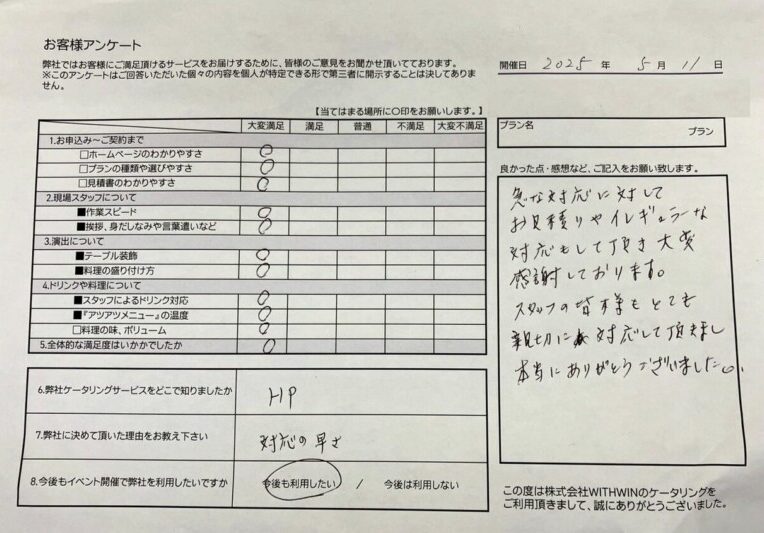 お客様アンケート
弊社ではお客様にご満足頂けるサービスをお届けするために、皆様のご意見をお聞かせ頂いてております。
※このアンケートはご回答いただいた個々の内容を個人が特定できる形で第三者に開示することは決してありま
せん。
開催日 2025 年 5 月 11 日
【当てはまる場所に〇印をお願いします。】
大変満足 満足 普通 不満足 大変不満足
1.お申込み～ご契約まで
□ホームページのわかりやすさ 〇
□プランの種類や選びやすさ 〇
□見積書のわかりやすさ 〇
2.現場スタッフについて
■作業スピード 〇
■挨拶、身だしなみや言葉遣いなど 〇
3.演出について
■テーブル装飾 〇
■料理の盛り付け方 〇
4.ドリンクや料理について
■スタッフによるドリンク対応 〇
■『アツアツメニュー』の温度 〇
□料理の味、ボリューム 〇
5.全体的な満足度はいかがでしたか 〇
6.弊社ケータリングサービスをどこで知りましたか HP
7.弊社に決めて頂いた理由をお教え下さい 対応の早さ
8.今後もイベント開催で弊社を利用したいですか 今後も利用したい / 今後は利用しない
プラン名 プラン
良かった点・感想など、ご記入をお願い致します。
急な対応に対して
お見積りやイレギュラーな
対応もして頂き大変
感謝しております。
スタッフの皆様もとても
親切に対応して頂きまし
本当にありがとうございました。
この度は株式会社WITHWINのケータリングを
ご利用頂きまして、誠にありがとうございました。